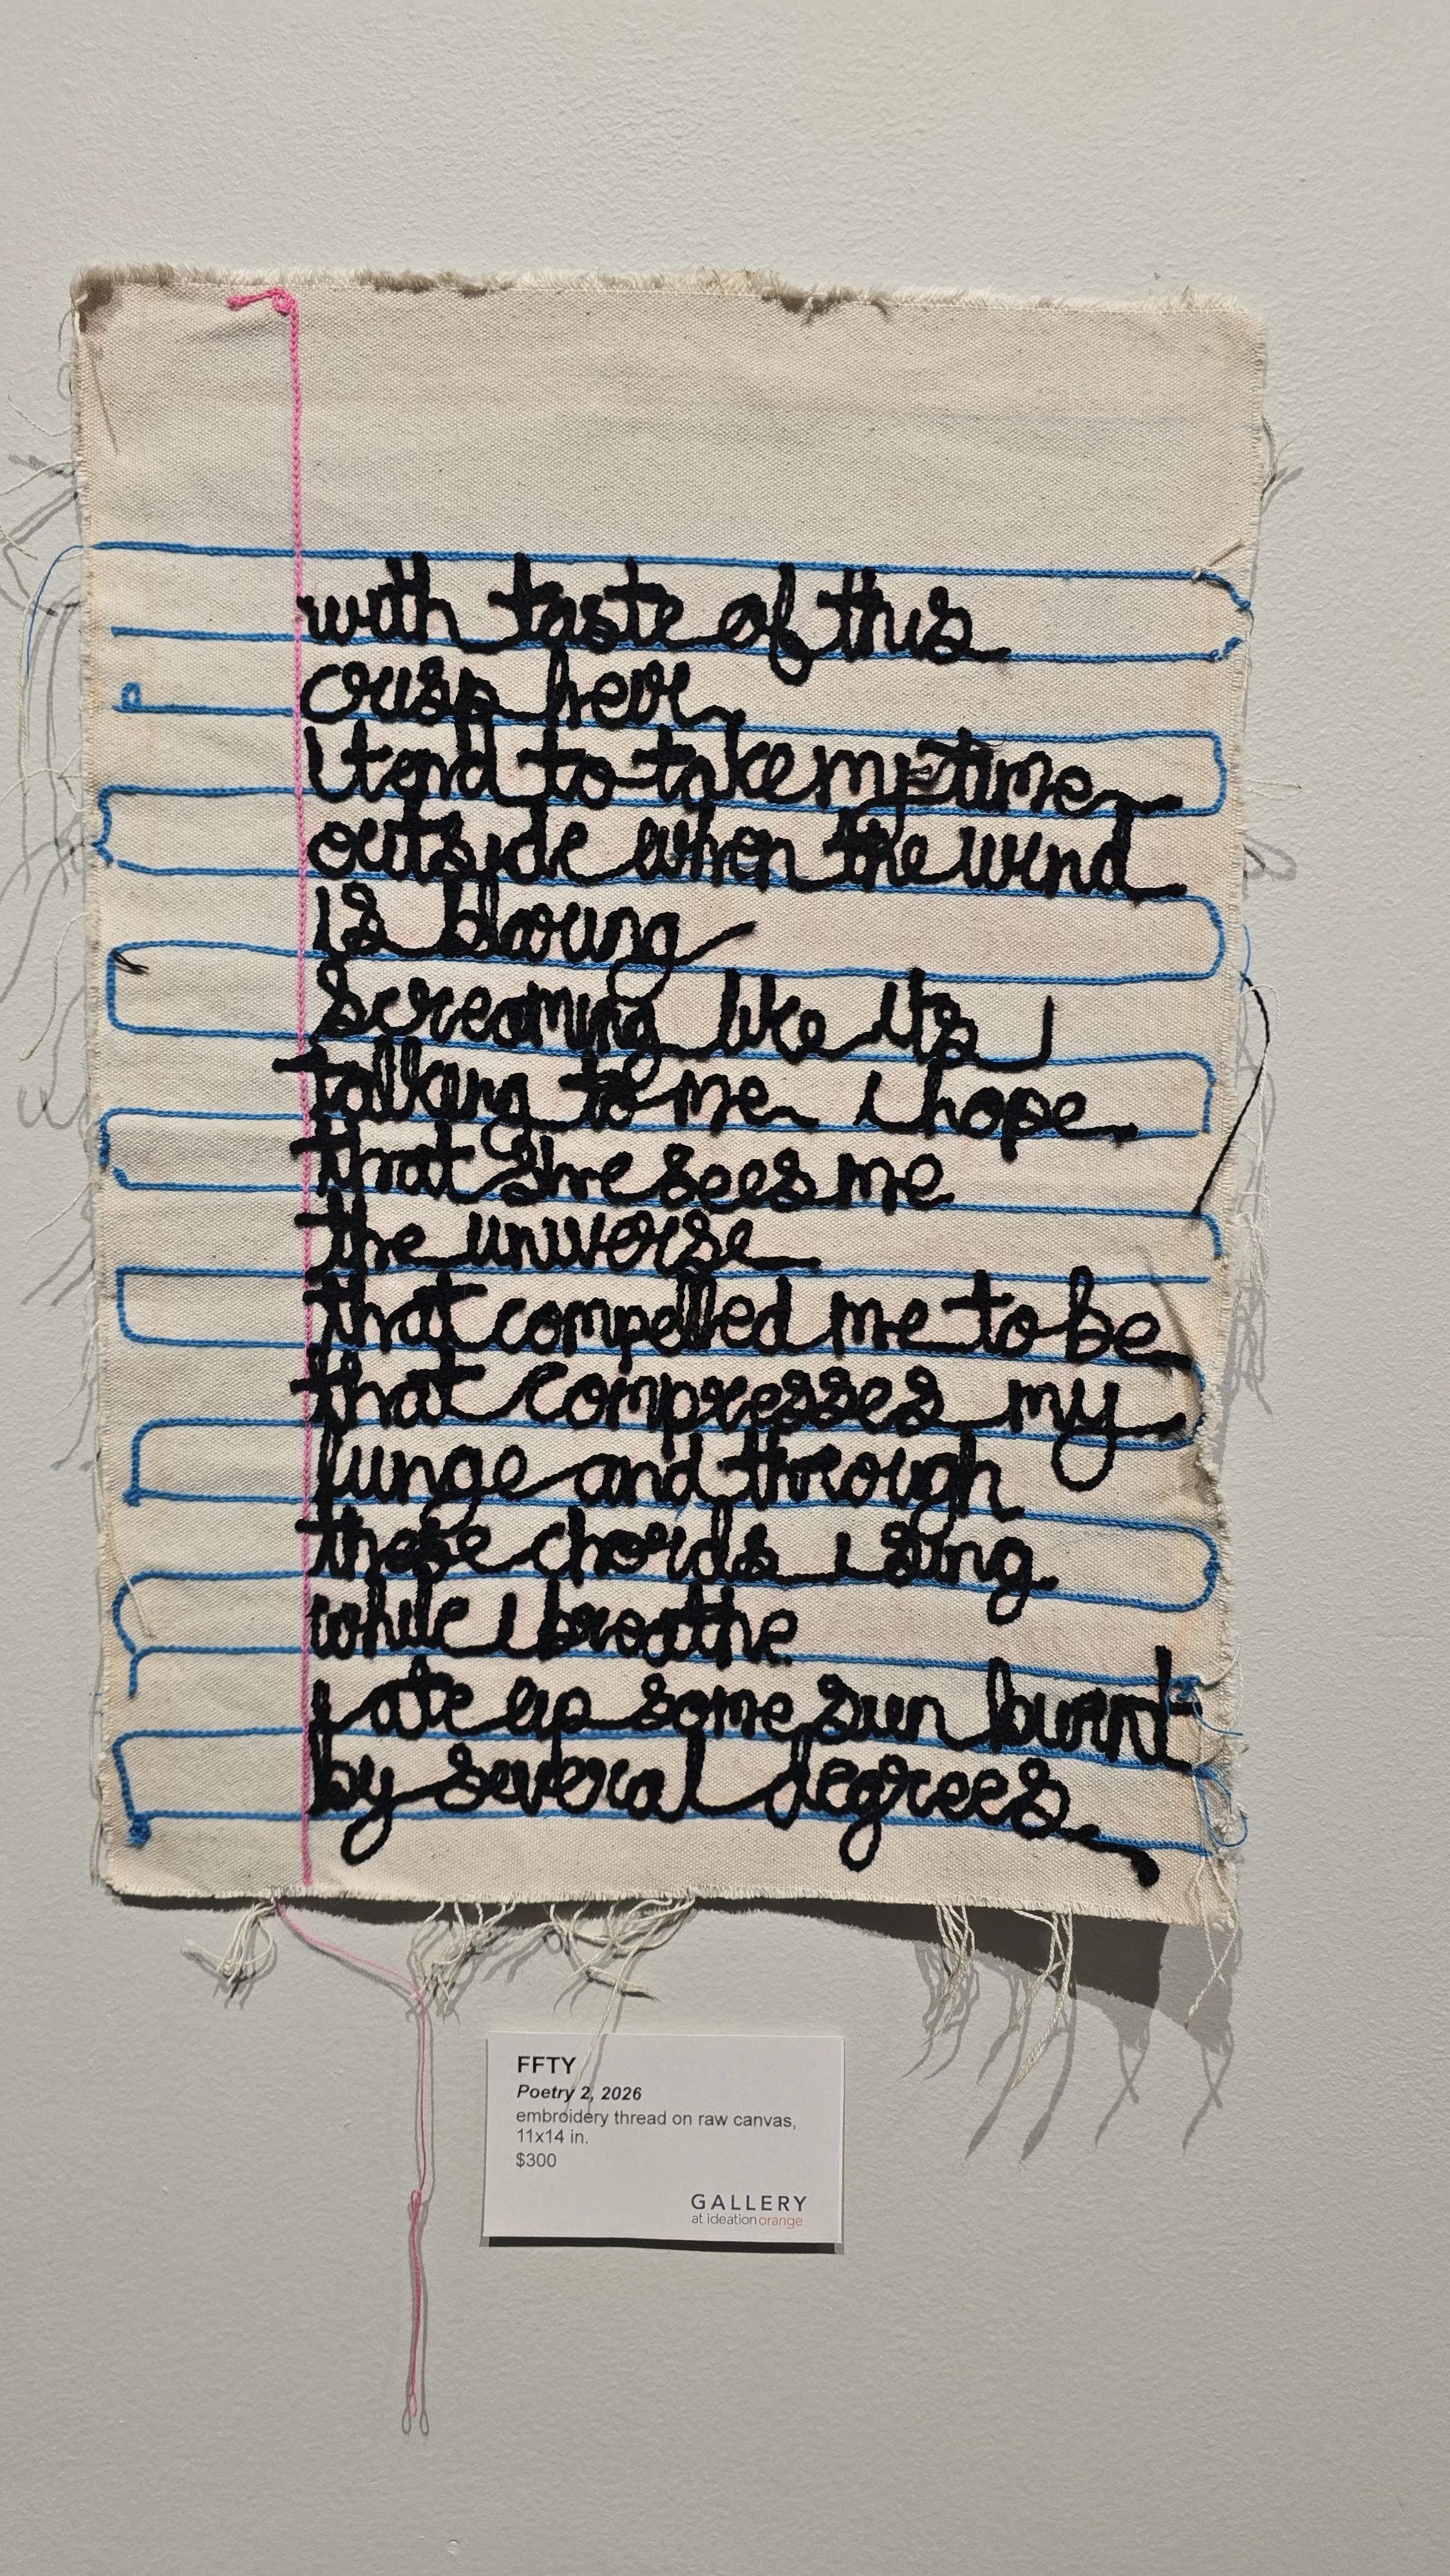 with taste of this
crisp here
I tend to take my time
outside when the wind
is blowing
screaming like its
talking to me i hope
that she sees me
the universe
that compelled me to be
that compresses my
lungs and through
these chords i sing
while i breathe
i ate up some sun burnt
by several degrees
FFTY
Poetry 2, 2026
embroidery thread on raw canvas,
11x14 in.
$300
GALLERY
at ideationorange